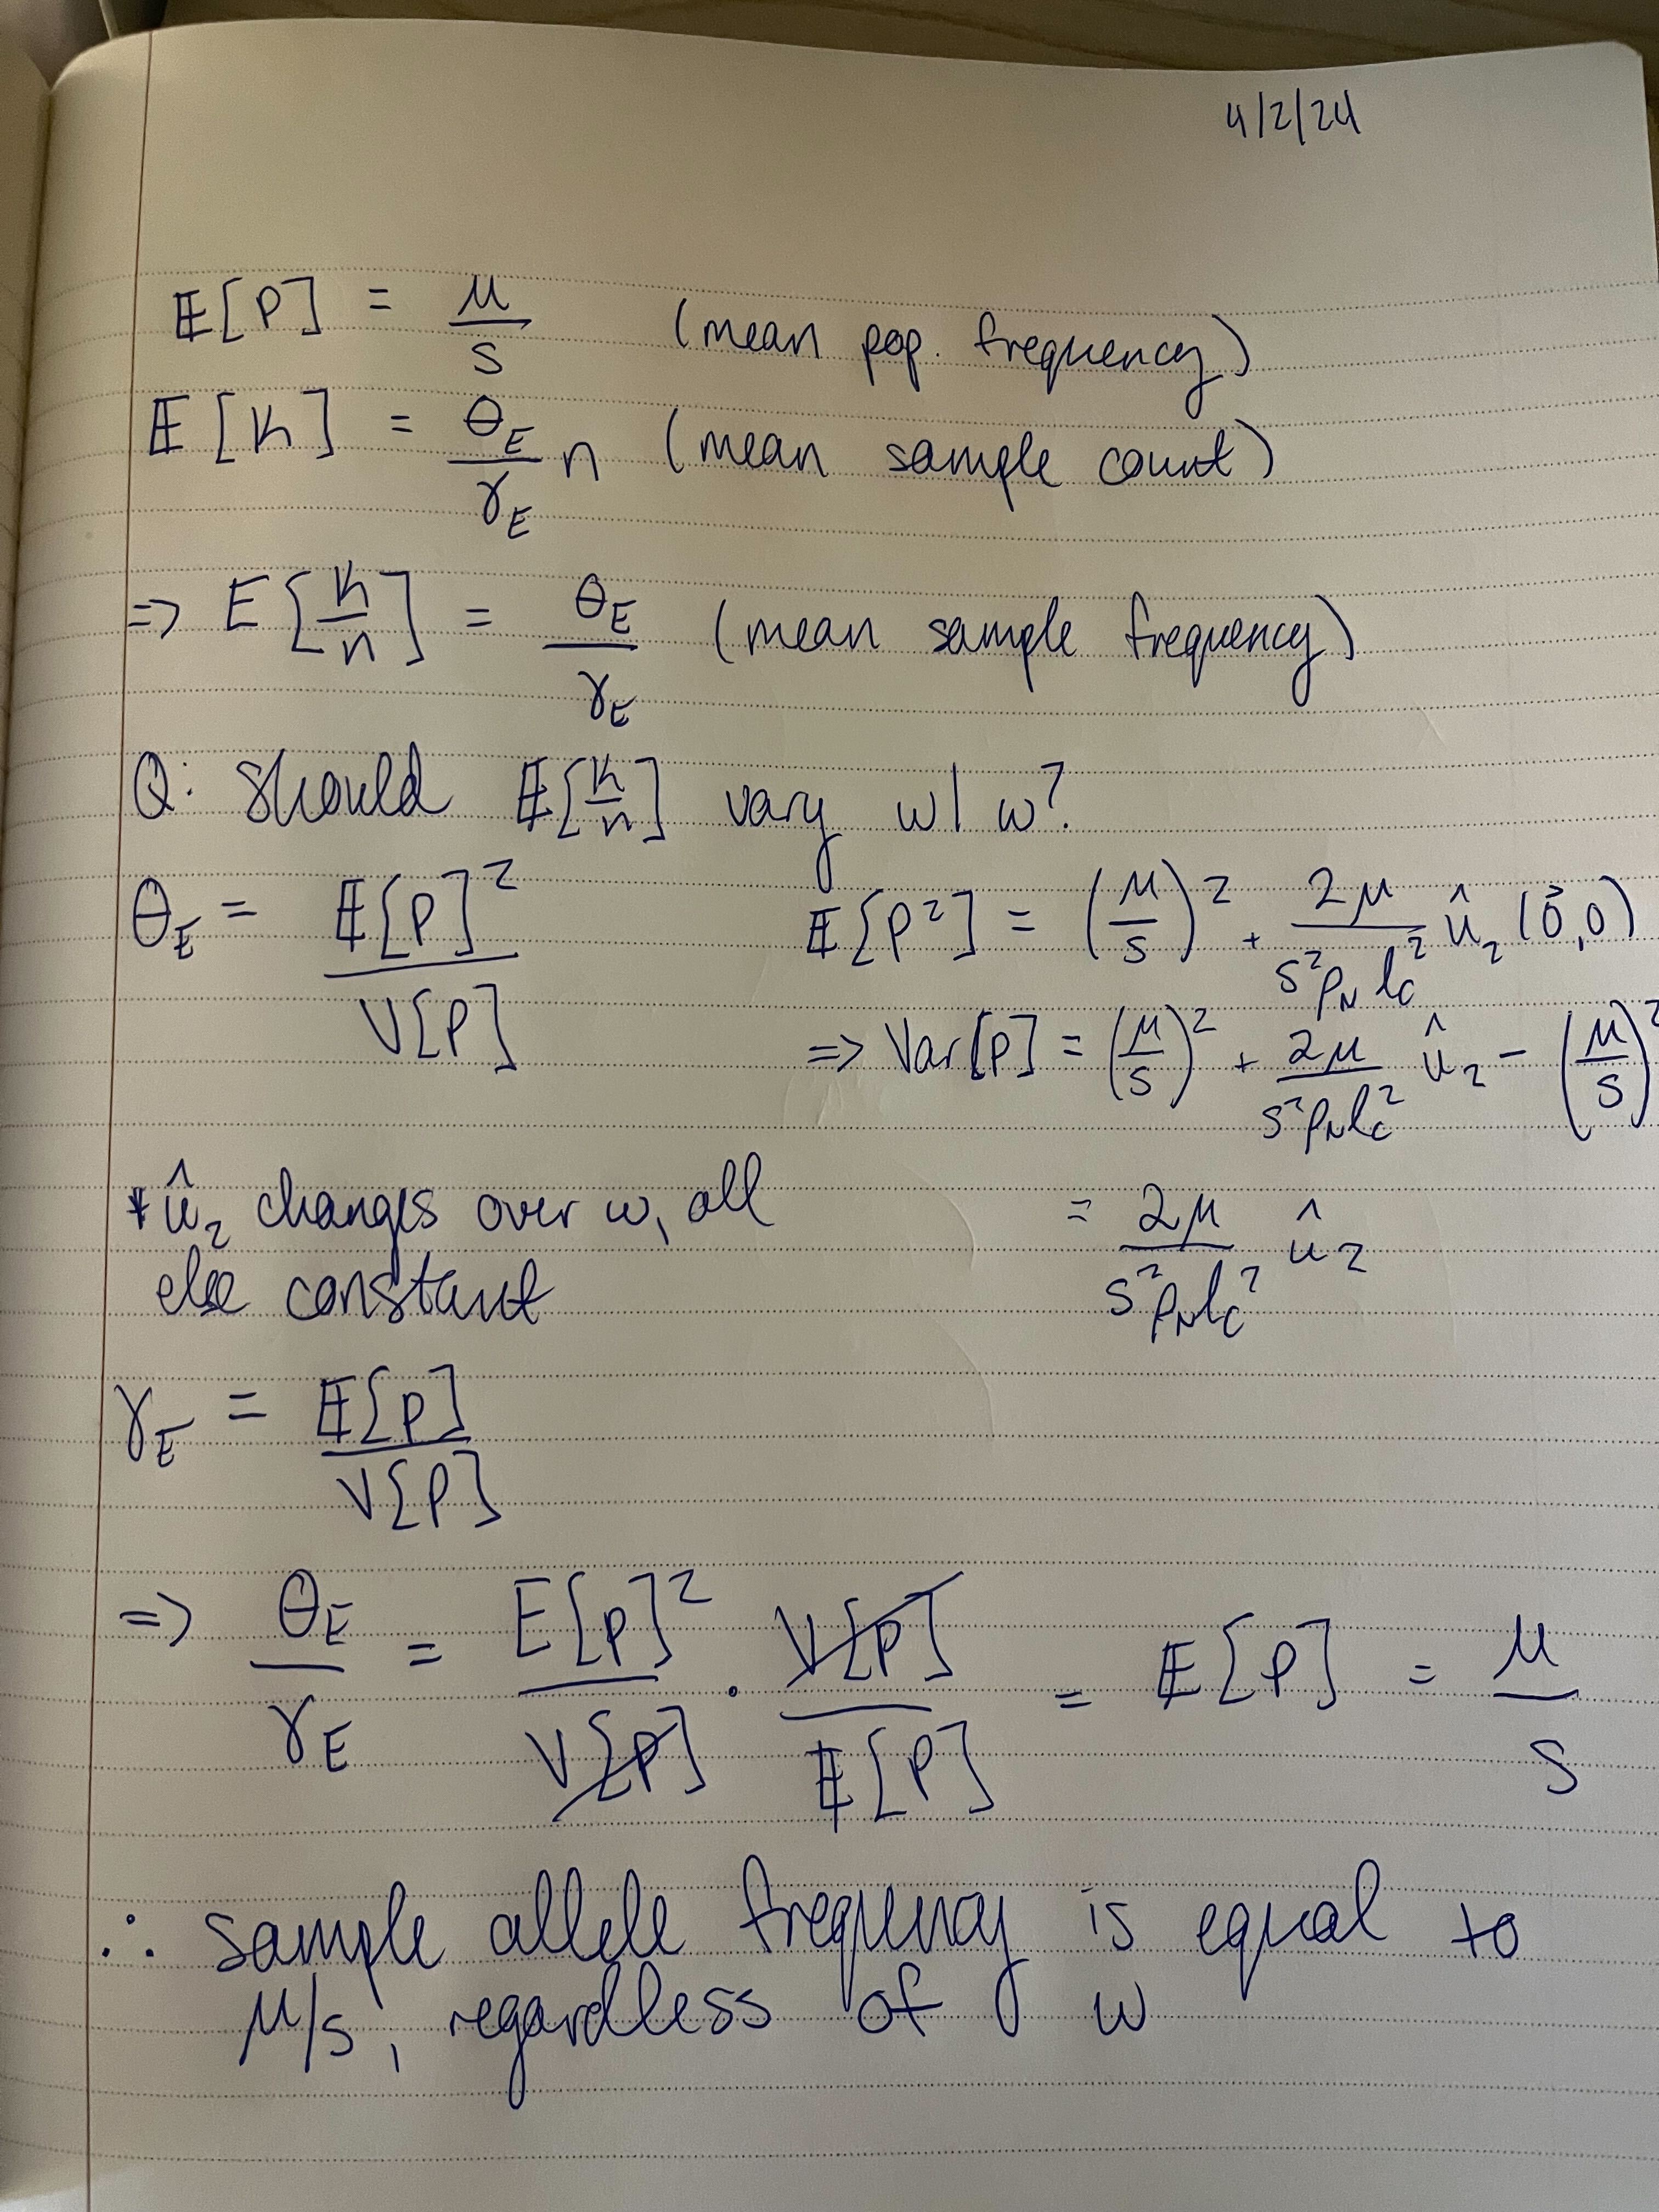 4/2/24
𝔼[p] = μ/s (mean pop. frequency)
𝔼[k] = θ_E/γ_E n (mean sample count)
=> E[k/n] = θ_E/γ_E (mean sample frequency)
Q: should 𝔼[k/n] vary w/ ω?
θ_E = 𝔼[p]²/V[p]
𝔼[p²] = (μ/s)² + 2μ/(s²ρ_N l_c²) û₂(0⃗,0)
=> Var[p] = (μ/s)² + 2μ/(s²ρ_N l_c²) û₂ - (μ/s)²
= 2μ/(s²ρ_N l_c²) û₂
* û₂ changes over ω, all
else constant
γ_E = 𝔼[p]/V[p]
=> θ_E/γ_E = E[p]²/V[p] · V[p]/𝔼[p] = 𝔼[p] = μ/s
∴ sample allele frequency is equal to
μ/s, regardless of ω